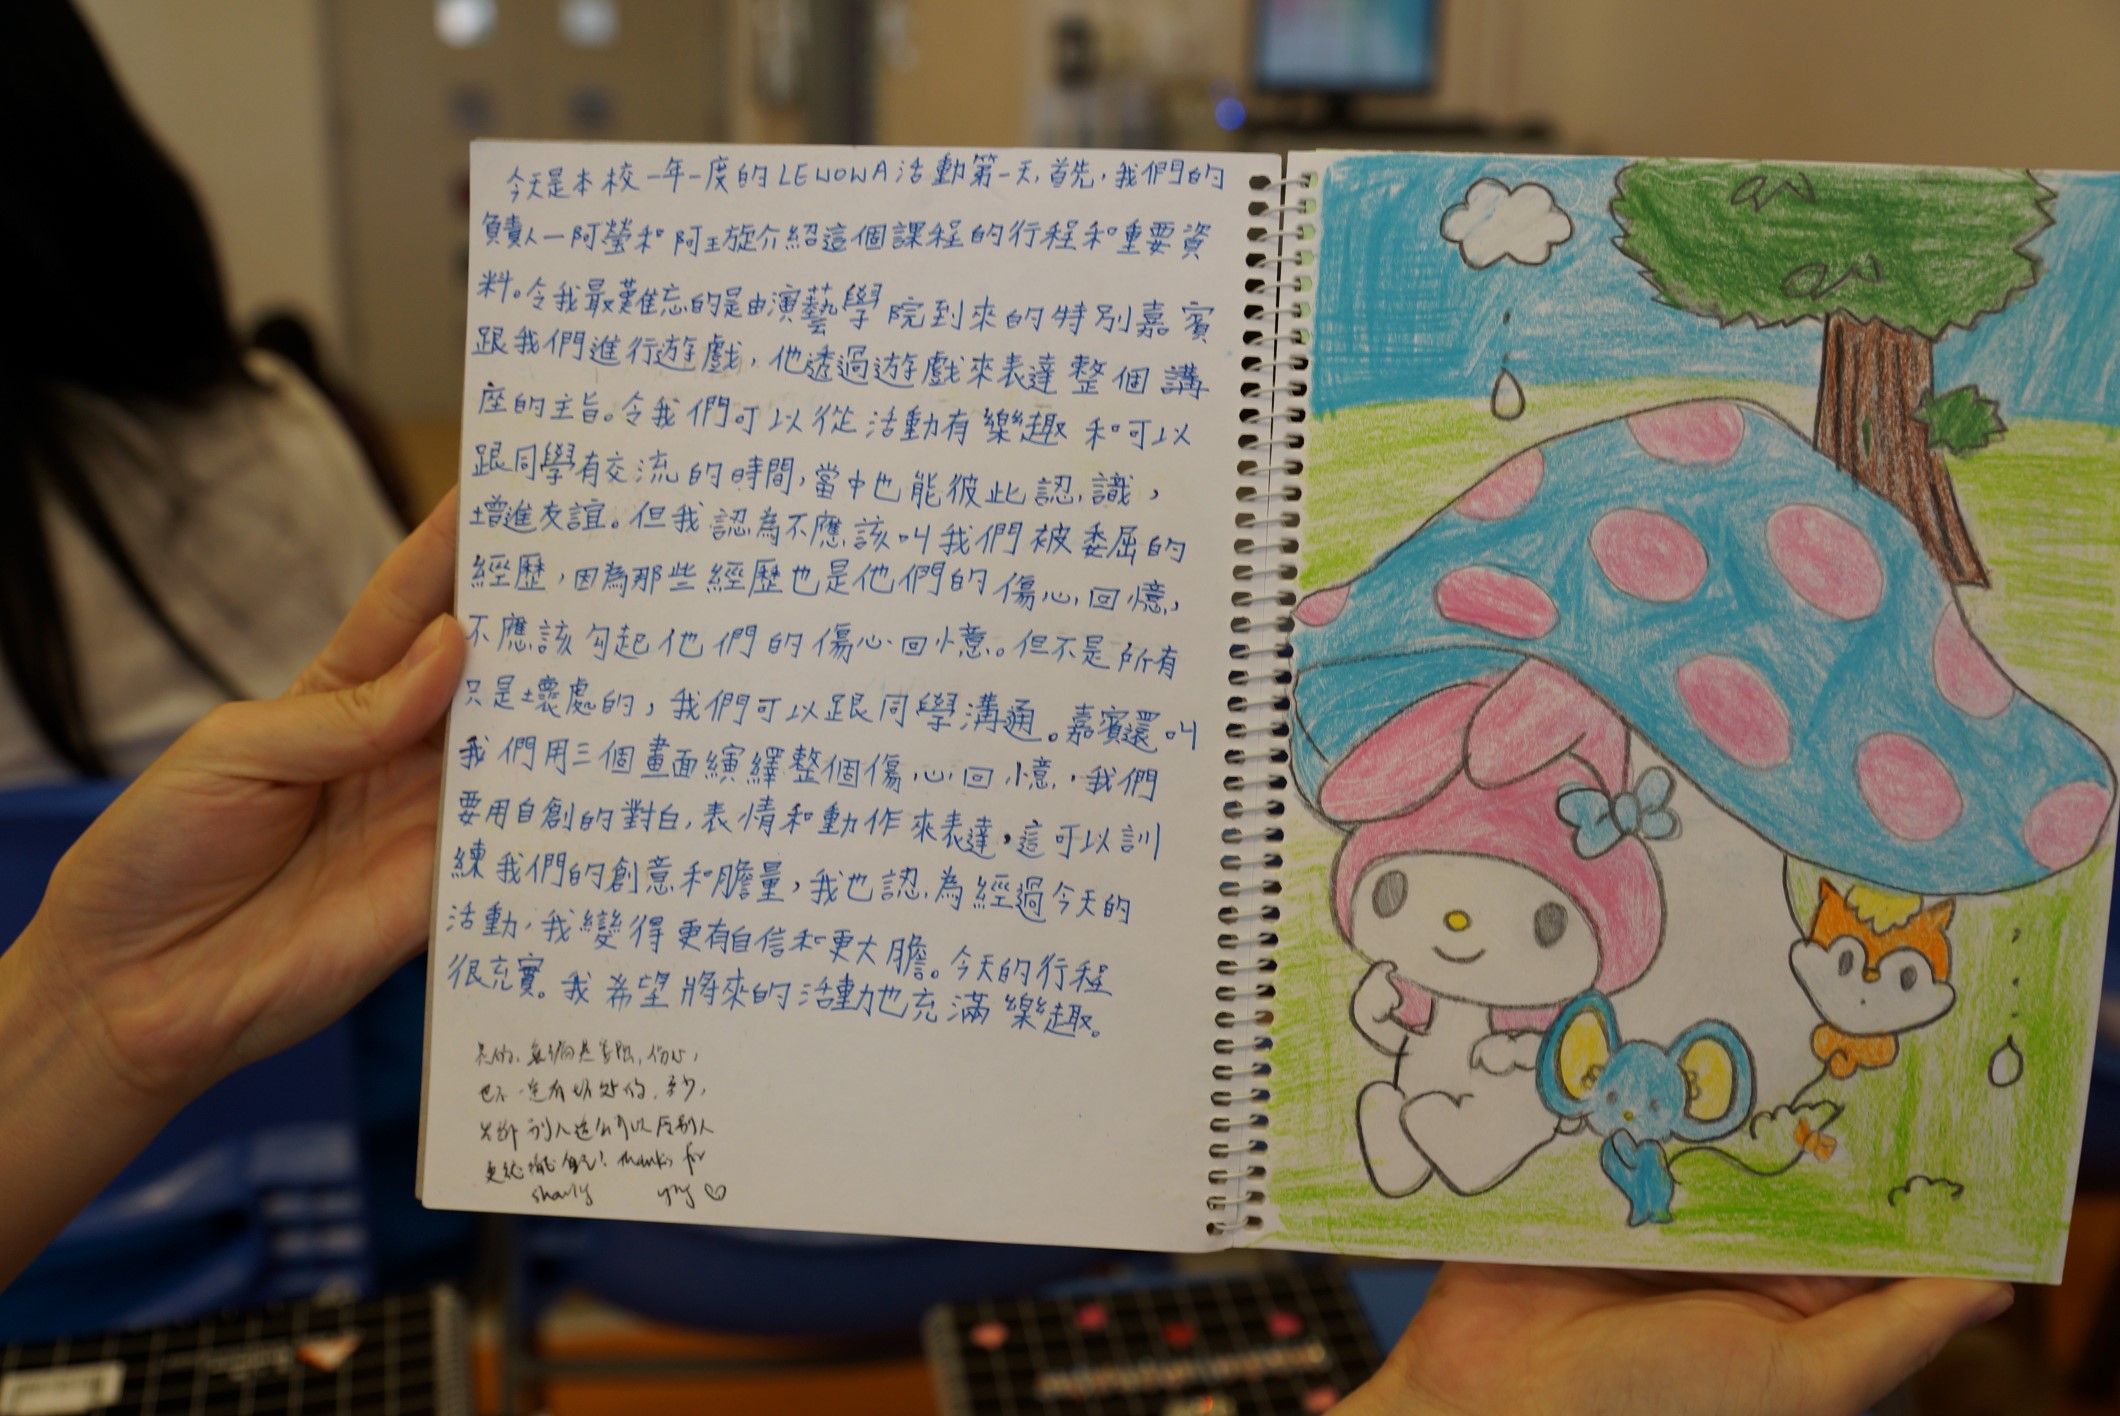 今天是本校一年一度的LEWOWA活動第一天,首先,我們的
負責人一阿瑩和阿璇介紹這個課程的行程和重要資
料。令我最難忘的是由演藝學院到來的特別嘉賓
跟我們進行遊戲,他透過遊戲來表達整個講
座的主旨。令我們可以從活動有樂趣和可以
跟同學有交流的時間,當中也能彼此認識,
增進友誼。但我認為不應該叫我們被委屈的
經歷,因為那些經歷也是他們的傷心回憶,
不應該勾起他們的傷心回憶。但不是所有
只是壞處的,我們可以跟同學溝通。嘉賓還叫
我們用三個畫面縯繹整個傷心回憶,我們
要用自創的對白,表情和動作來表達,這可以訓
練我們的創意和膽量,我也認為經過今天的
活動,我變得更有自信和更大膽。今天的行程
很充實。我希望將來的活動也充滿樂趣。
傷心,
也不一定有壞處的,至少,
別人
thanks for